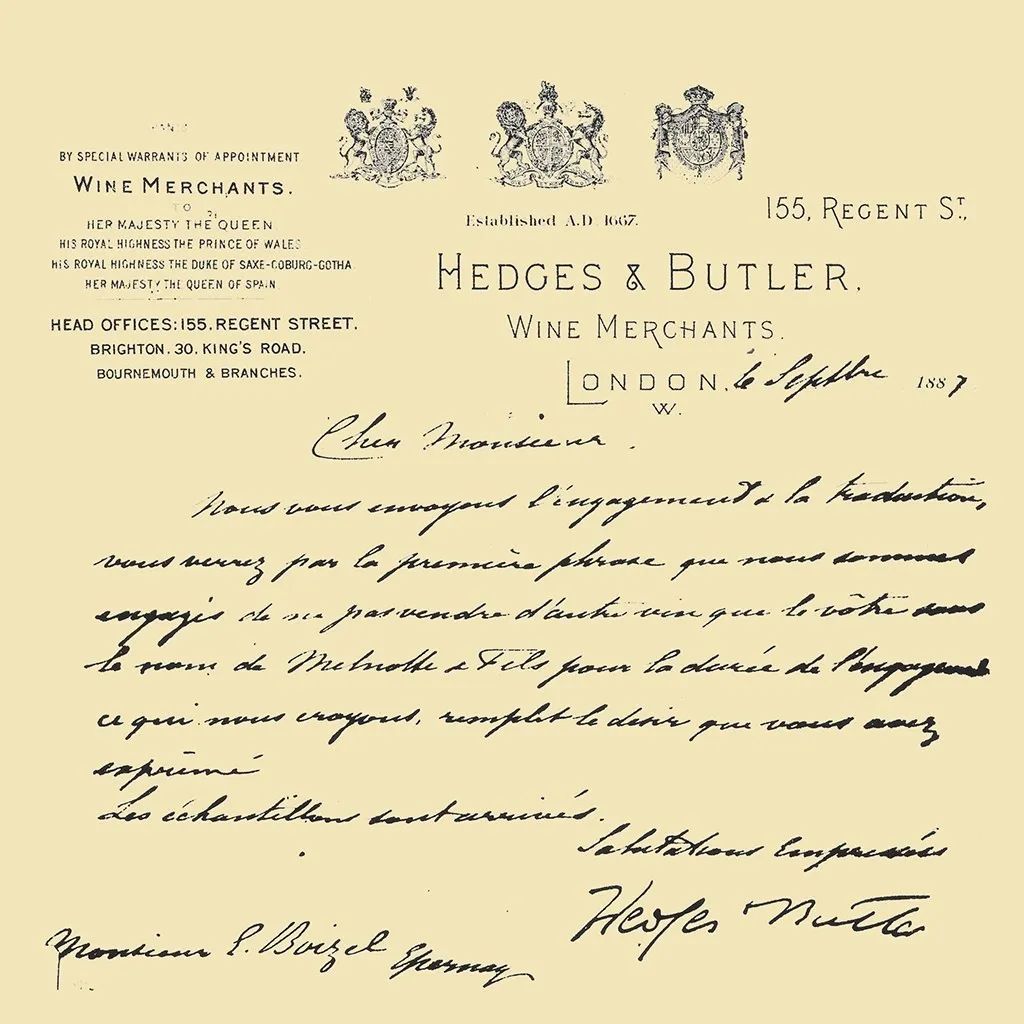 BY SPECIAL WARRANTS OF APPOINTMENT
WINE MERCHANTS.
TO
HER MAJESTY THE QUEEN
HIS ROYAL HIGHNESS THE PRINCE OF WALES
HIS ROYAL HIGHNESS THE DUKE OF SAXE-COBURG-GOTHA
HER MAJESTY THE QUEEN OF SPAIN
HEAD OFFICES: 155, REGENT STREET.
BRIGHTON. 30, KING'S ROAD.
BOURNEMOUTH & BRANCHES.
Established A.D. 1667.
155, REGENT ST,
HEDGES & BUTLER.
WINE MERCHANTS.
LONDON, le Septbre 1887
W.
Cher Monsieur.
Nous vous envoyons l'engagement & la traduction,
vous verrez par la première phrase que nous sommes
engagés de ne pas vendre d'autre vin que le vôtre sous
le nom de & Fils pour la durée de
ce qui nous croyons, remplet le desir que vous avez
exprimé
Les échantillons sont arrivés.
Salutations Empressées
Hedges & Butler
Monsieur E. Boizel Epernay